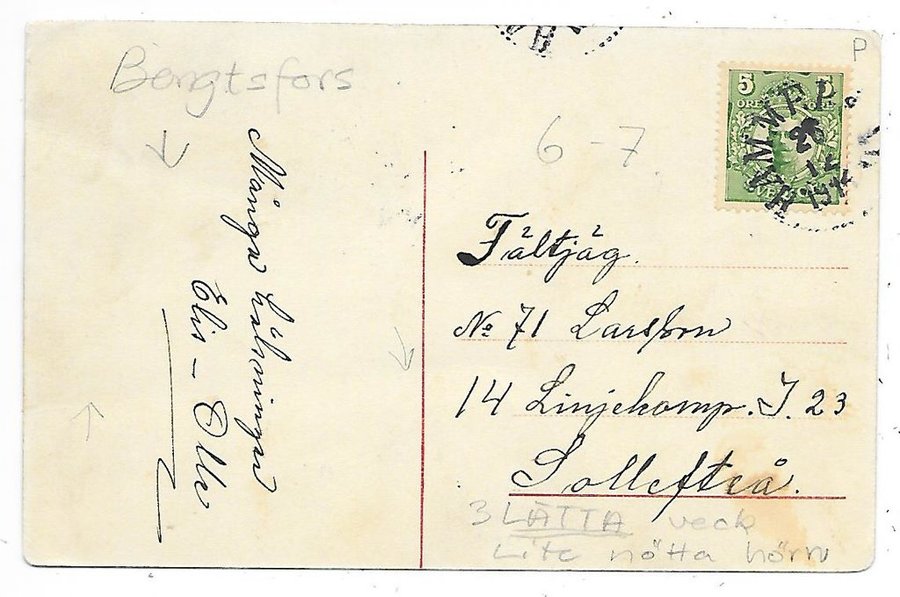 Bengtsfors
P
5 5
ÖRE
HAMMERD
20
12
1914
6-7
Många hälsningar
Elis - Olle
Fältjäg.
No 71 Larsson
14 Linjekomp. I. 23
Sollefteå.
3 LÄTTA veck
Lite nötta hörn